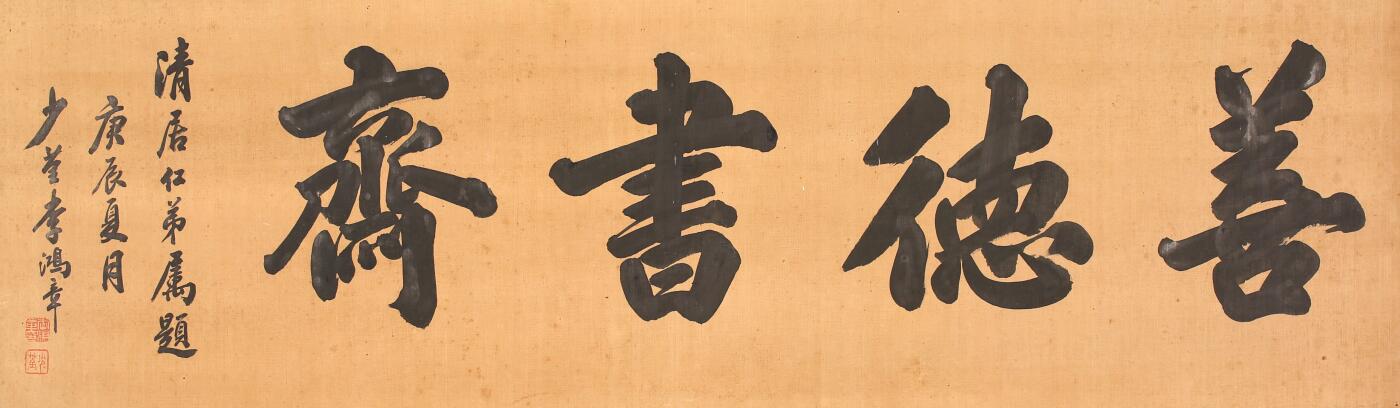 善德書齋
清居仁弟屬題
庚辰夏月
少荃李鴻章